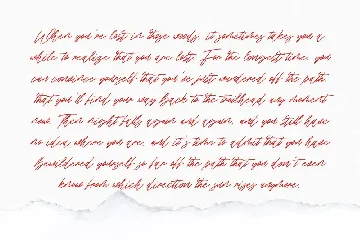 When you're lost in those woods, it sometimes takes you a
while to realize that you are lost. For the longest time, you
can convince yourself that you've just wandered off the path,
that you'll find your way back to the trailhead any moment
now. Then night falls again and again, and you still have
no idea where you are, and it's time to admit that you have
bewildered yourself so far off the path that you don't even
know from which direction the sun rises anymore.